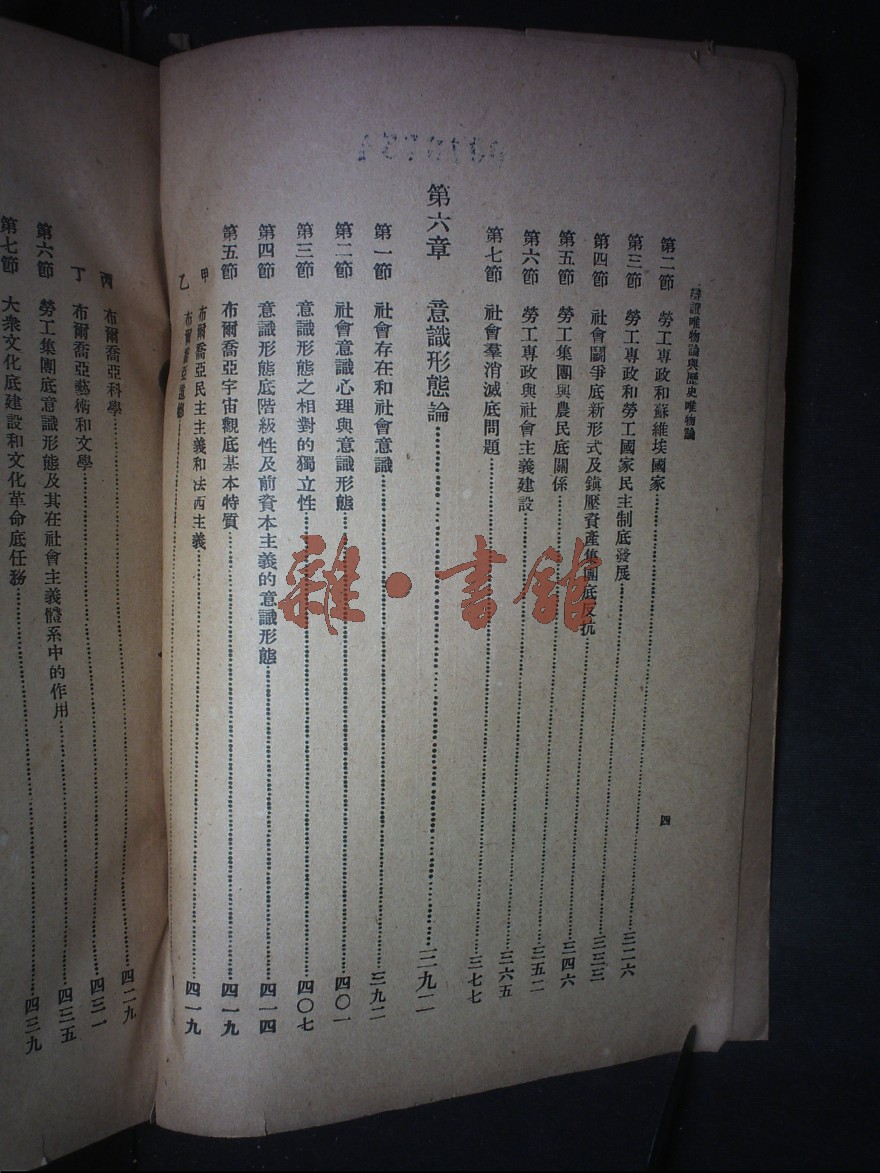 辯證唯物論與歷史唯物論　四
第二節　勞工專政和蘇維埃國家……三二六
第三節　勞工專政和勞工國家民主制底發展……三三三
第四節　社會鬪爭底新形式及鎮壓資產集團底反抗……三四六
第五節　勞工集團與農民底關係……三五二
第六節　勞工專政與社會主義建設……三六五
第七節　社會羣消滅底問題……三七七
第六章　意識形態論……三九二
第一節　社會存在和社會意識……三九二
第二節　社會意識心理與意識形態……四〇一
第三節　意識形態之相對的獨立性……四〇七
第四節　意識形態底階級性及前資本主義的意識形態……四一四
第五節　布爾喬亞宇宙觀底基本特質……四一九
甲　布爾喬亞民主主義和法西主義……四一九
乙　布爾喬亞……
丙　布爾喬亞科學……四二九
丁　布爾喬亞藝術和文學……四三一
第六節　勞工集團底意識形態及其在社會主義體系中的作用……四三五
第七節　大衆文化底建設和文化革命底任務……四三九
雜·書館